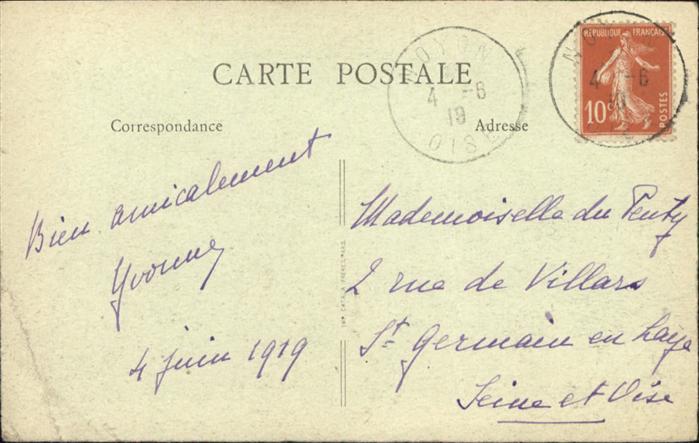 CARTE POSTALE
Correspondance
Adresse
NOYON
4 -6
19
OISE
RÉPUBLIQUE FRANÇAISE
10c
POSTES
Bien amicalement
Yvonne
4 juin 1919
Mademoiselle du
2 rue de Villars
St Germain en Laye
Seine et Oise